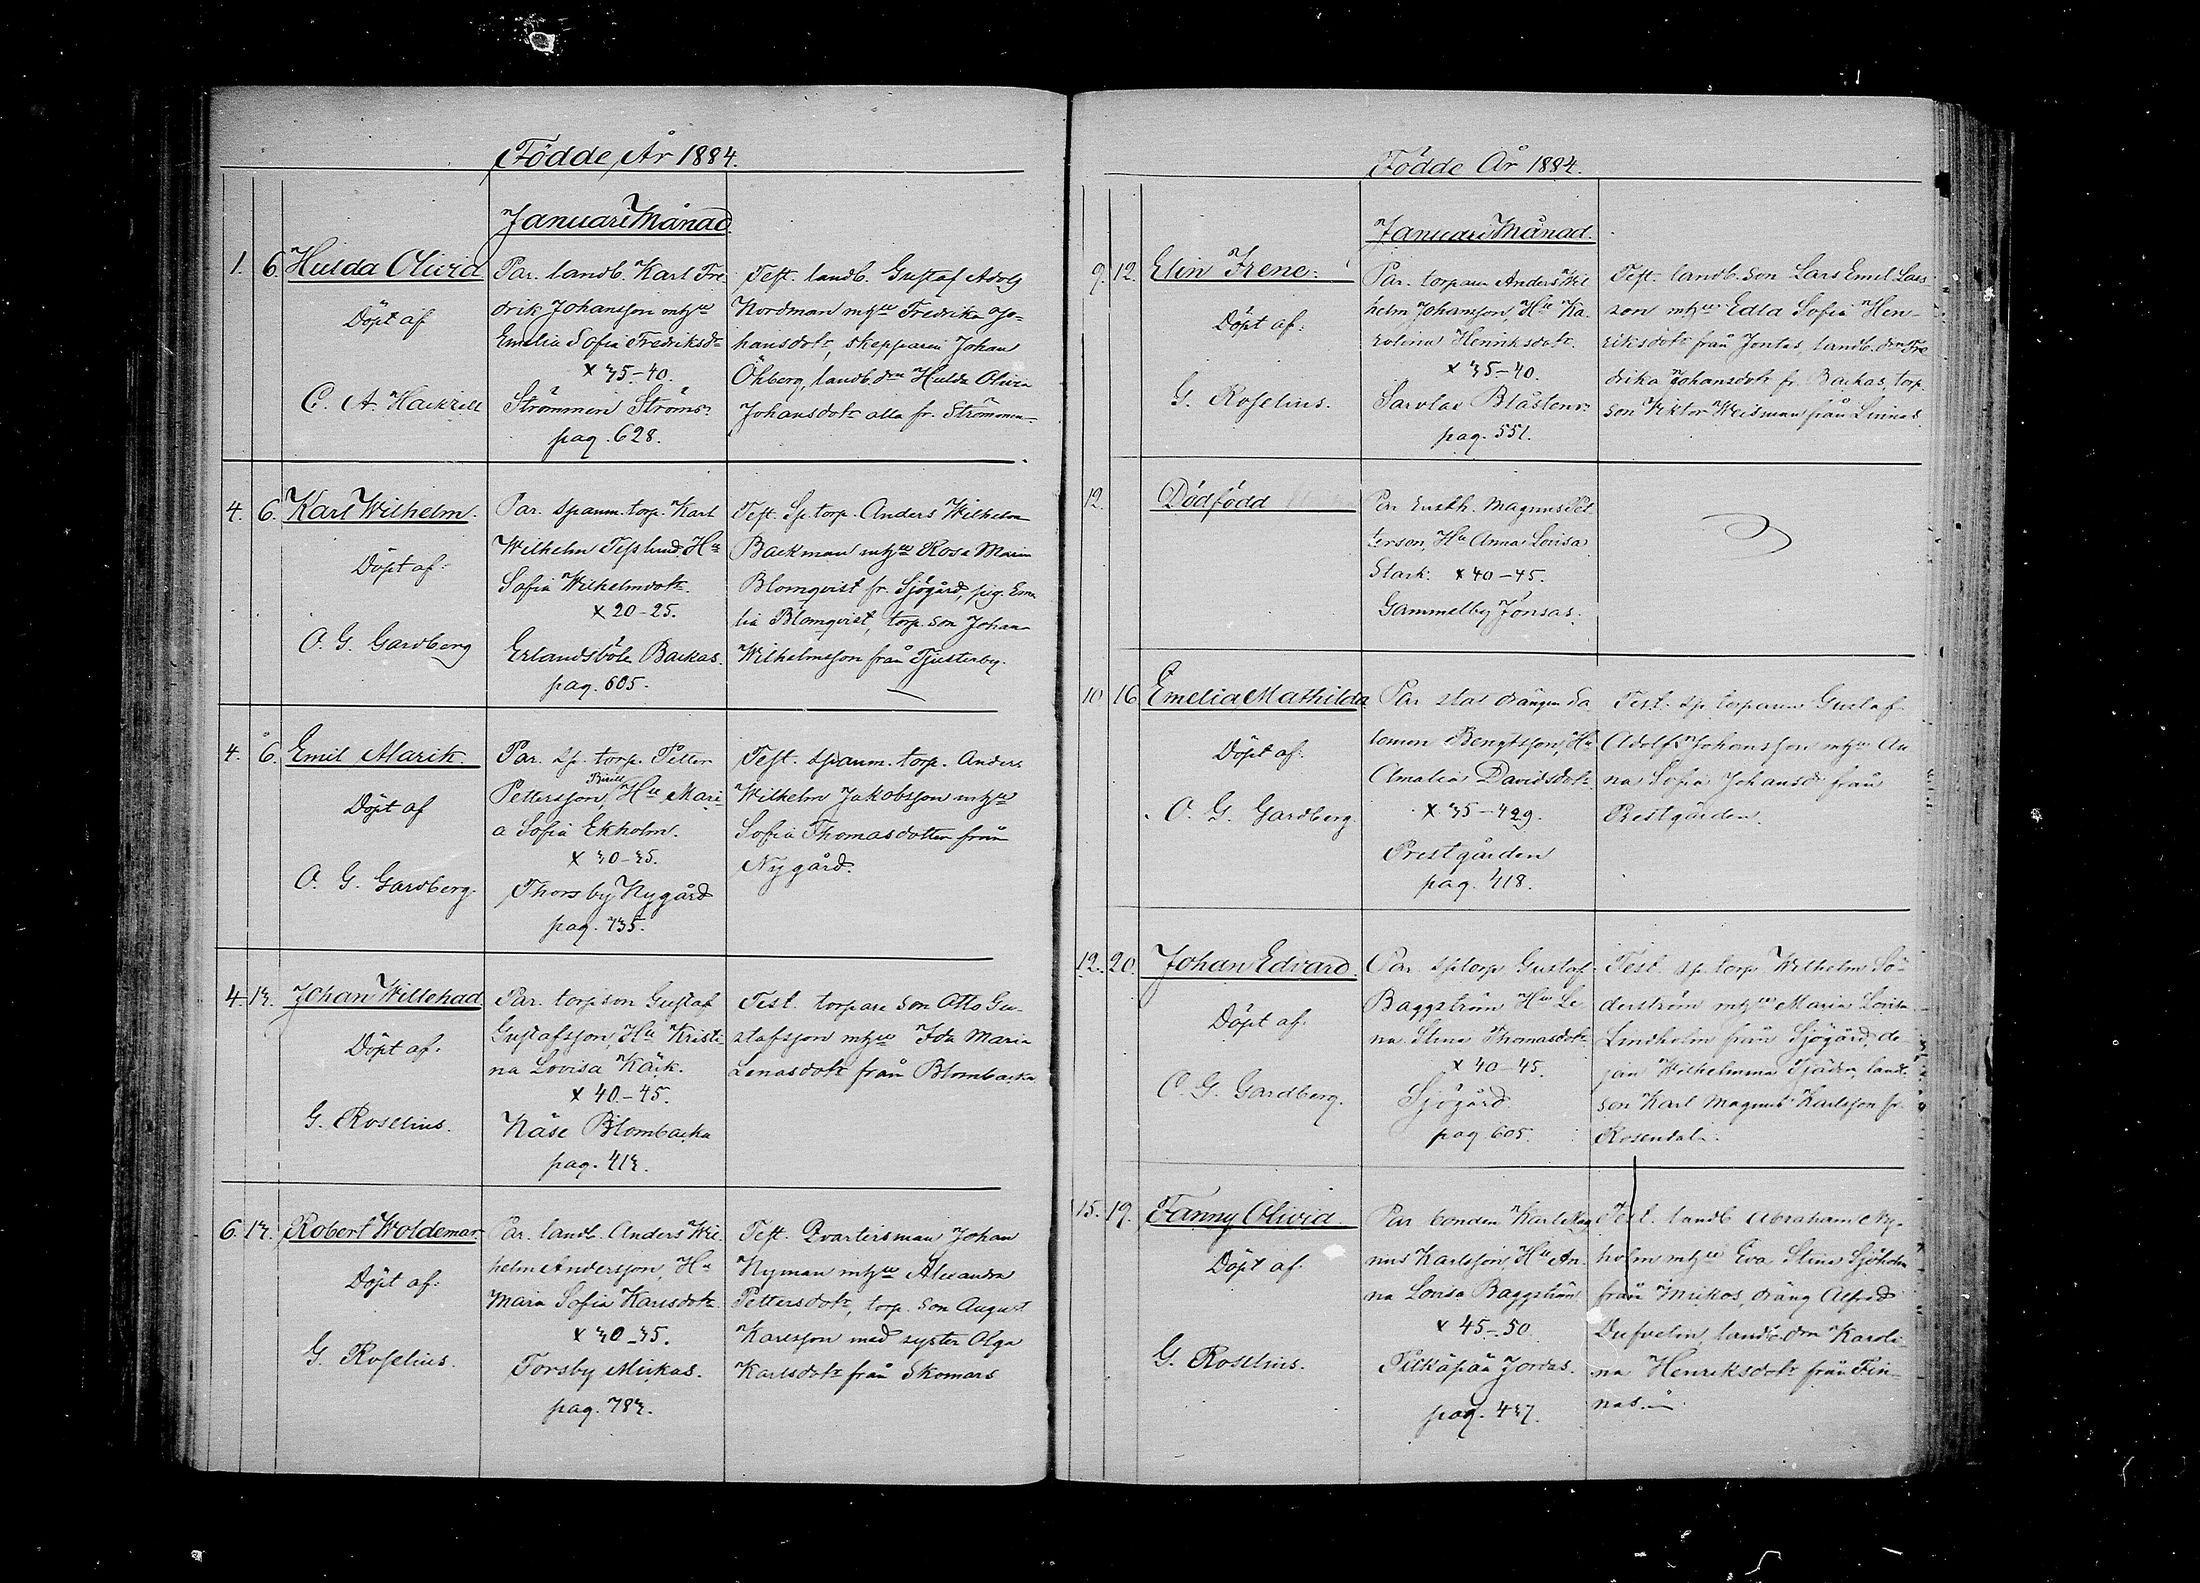 Födde År 1884.
Januari Månad.
1. 6. Hulda Olivia
Döpt af
C. A. Hackzell
Par. landb. Karl Fre
drik Johansson m hu
Emelia Sofia Fredriksdr
x 35-40.
Strömmen Ströms
pag. 628.
Test. landb. Gustaf Adolf
Nordman m hu Fredrika Jo-
hansdotr, skepparen Johan
Öhberg, landb. dn Hulda Olivia
Johansdotr alla fr. Strömmen
4. 6. Karl Wilhelm.
Döpt af:
O. G. Gardberg
Par. spanm. torp. Karl
Wilhelm Tesslund Hu
Sofia Wilhelmdotr.
x 20-25.
Erlandsböle Backas.
pag. 605.
Test. Sp. torp. Anders Wilhelm
Backman m hu Rosa Maria
Blomqvist fr. Sjögård, pig. Eme
lia Blomqvist, torp. son Johan
Wilhelmsson från Tjusterby.
4. 6. Emil Marik
Döpt af
O. G. Gardberg.
Par. Sp. torp. Petter
Pettersson, Hu Mari
a Sofia Ekholm.
x 30-35.
Thorsby Nygård
pag. 735.
Test. spanm. torp. Anders
Wilhelm Jakobsson m hu
Sofia Thomasdotter från
Nygård.
4. 13. Johan Willehad
Döpt af.
G. Roselius.
Par. torp son Gustaf
Gustafsson, Hu Kristi
na Lovisa Käck.
x 40-45.
Näse Blombacka
pag. 413.
Test. torpare son Otto Gu-
stafsson m hu Ida Maria
Lenasdotr från Blombacka
6. 13. Robert Woldemar.
Döpt af:
G. Roselius.
Par. landb. Anders Wil
helm Andersson, Hu
Maria Sofia Karlsdotr
x 30-35.
Torsby Mickas.
pag. 783.
Test. Qvartersman Johan
Nyman m hu Alexandra
Pettersdotr, torp. son August
Karlsson med syster Olga
Karlsdotr från Skomars
Födde År 1884.
Januari Månad.
9. 12. Elin Irene.
Döpt af:
G. Roselius.
Par. torparn Anders Wil
helm Johansson, Hu Ka
rolina Henriksdotr.
x 35-40.
Sarvlax Blåstens
pag. 551.
Test. landb. son Lars Emil Lars
son m hu Edla Sofia Hen-
riksdotr från Jontas, landb. dn Fre
drika Johansdotr fr. Backas, torp.
son Viktor Weisman från Linnas.
12. Dödfödd
Par Enskh. Magnus Pet
terson, Hu Anna Lovisa
Stark. x 40-45.
Gammelby Jonsas.
10 16 Emelia Mathilda
Döpt af:
O. G. Gardberg.
Par stat drängen Sa
lomon Bengtsson, Hu
Amalia Davidsdotr
x 35-429.
Prestgården
pag. 418.
Test. sp. torparen Gustaf
Adolf Johansson m hu An
na Sofia Johansdr från
Prestgården.
12. 20. Johan Edvard.
Döpt af.
O. G. Gardberg.
Par. sp torp Gustaf
Baggström Hu Le
na Stina Thomasdotr
x 40-45.
Sjögård
pag 605.
Test. sp. torp. Wilhelm Sö-
derström m hu Maria Lovisa
Lindholm från Sjögård, de-
jan Wilhelmina Sjödén, landb.
son Karl Magnus Karlsson fr.
Rosendal.
15. 19. Fanny Olivia
Döpt af.
G. Roselius.
Par bonden Karl Mag
nus Karlsson, Hu An.
na Lovisa Baggström
x 45-50
Pitkäpää Jordas.
pag. 437.
Test. landb Abraham Ny-
holm m hu Eva Stina Sjöholm
från Mickos, dräng Alfred
Dufvelin, landb. dn Karoli-
na Henriksdotr från Fin-
nas.